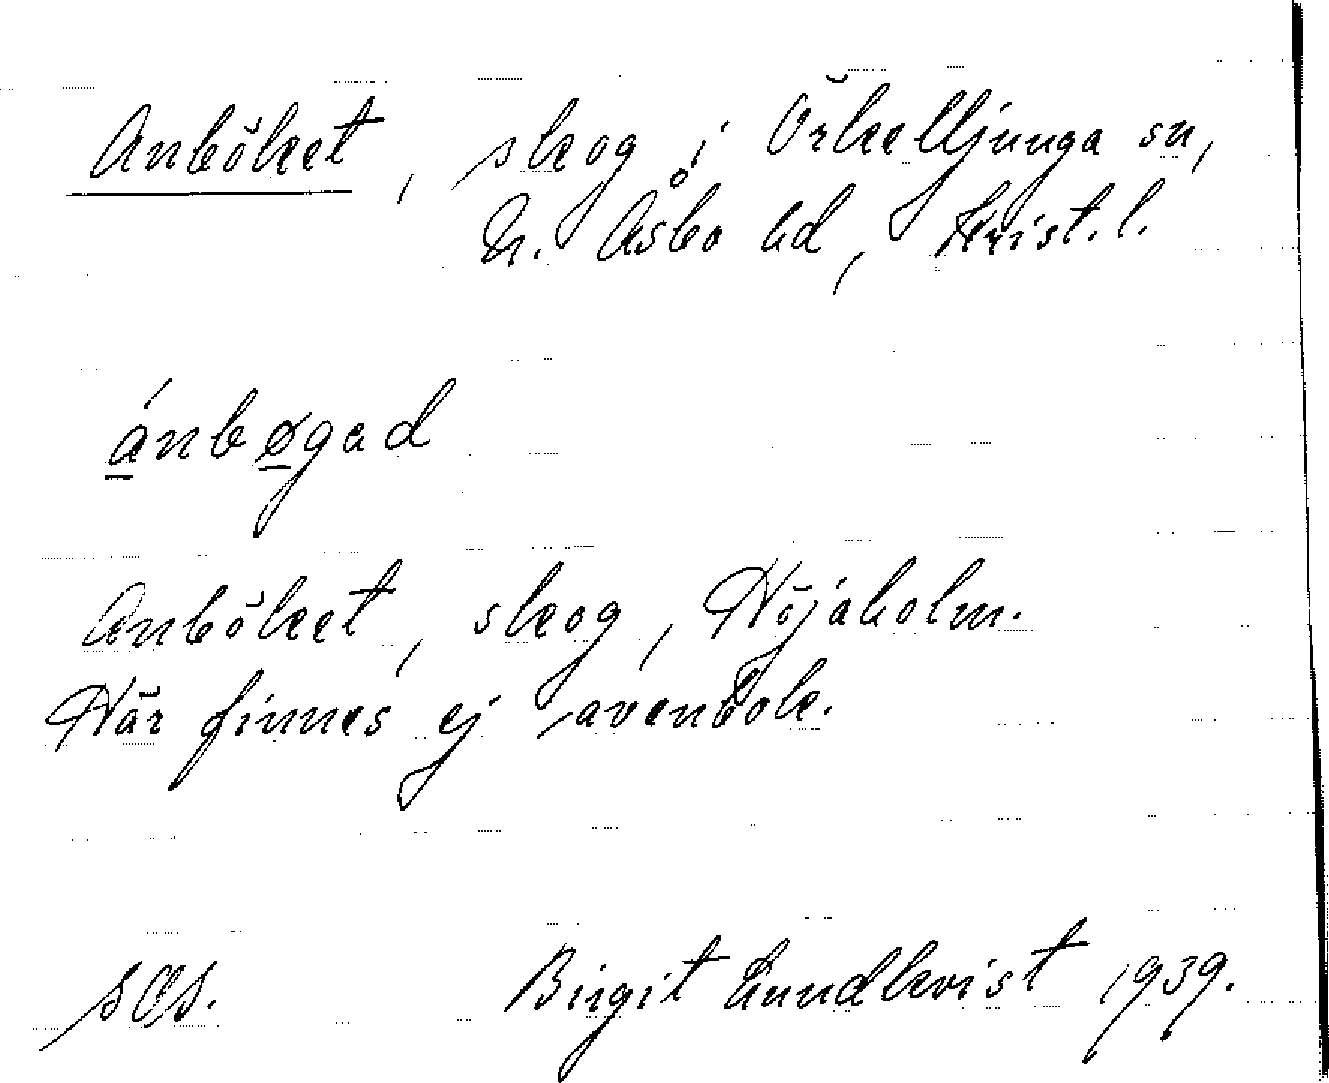 Anböket, skog i Örkelljunga sn,
N. Åsbo hd, Krist. l.
ánbøgad
Anböket, skog, Höjaholm.
Här finnes ej avenbok.
Birgit Lundkvist 1939.